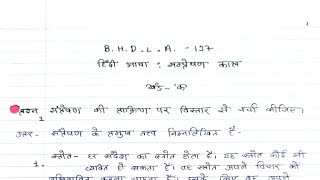 B. H. D. L. A. - 137
हिंदी भाषा : सम्प्रेषण काल
खंड - 'क'
प्रश्न संप्रेषण की प्रक्रिया पर विस्तार से चर्चा कीजिए।
उत्तर - संप्रेषण के प्रमुख तत्व निम्नलिखित हैं -
1. स्रोत - हर संदेश का स्रोत होता है। यह स्रोत कोई भी
व्यक्ति हो सकता है। वह स्रोत अपने विचार को